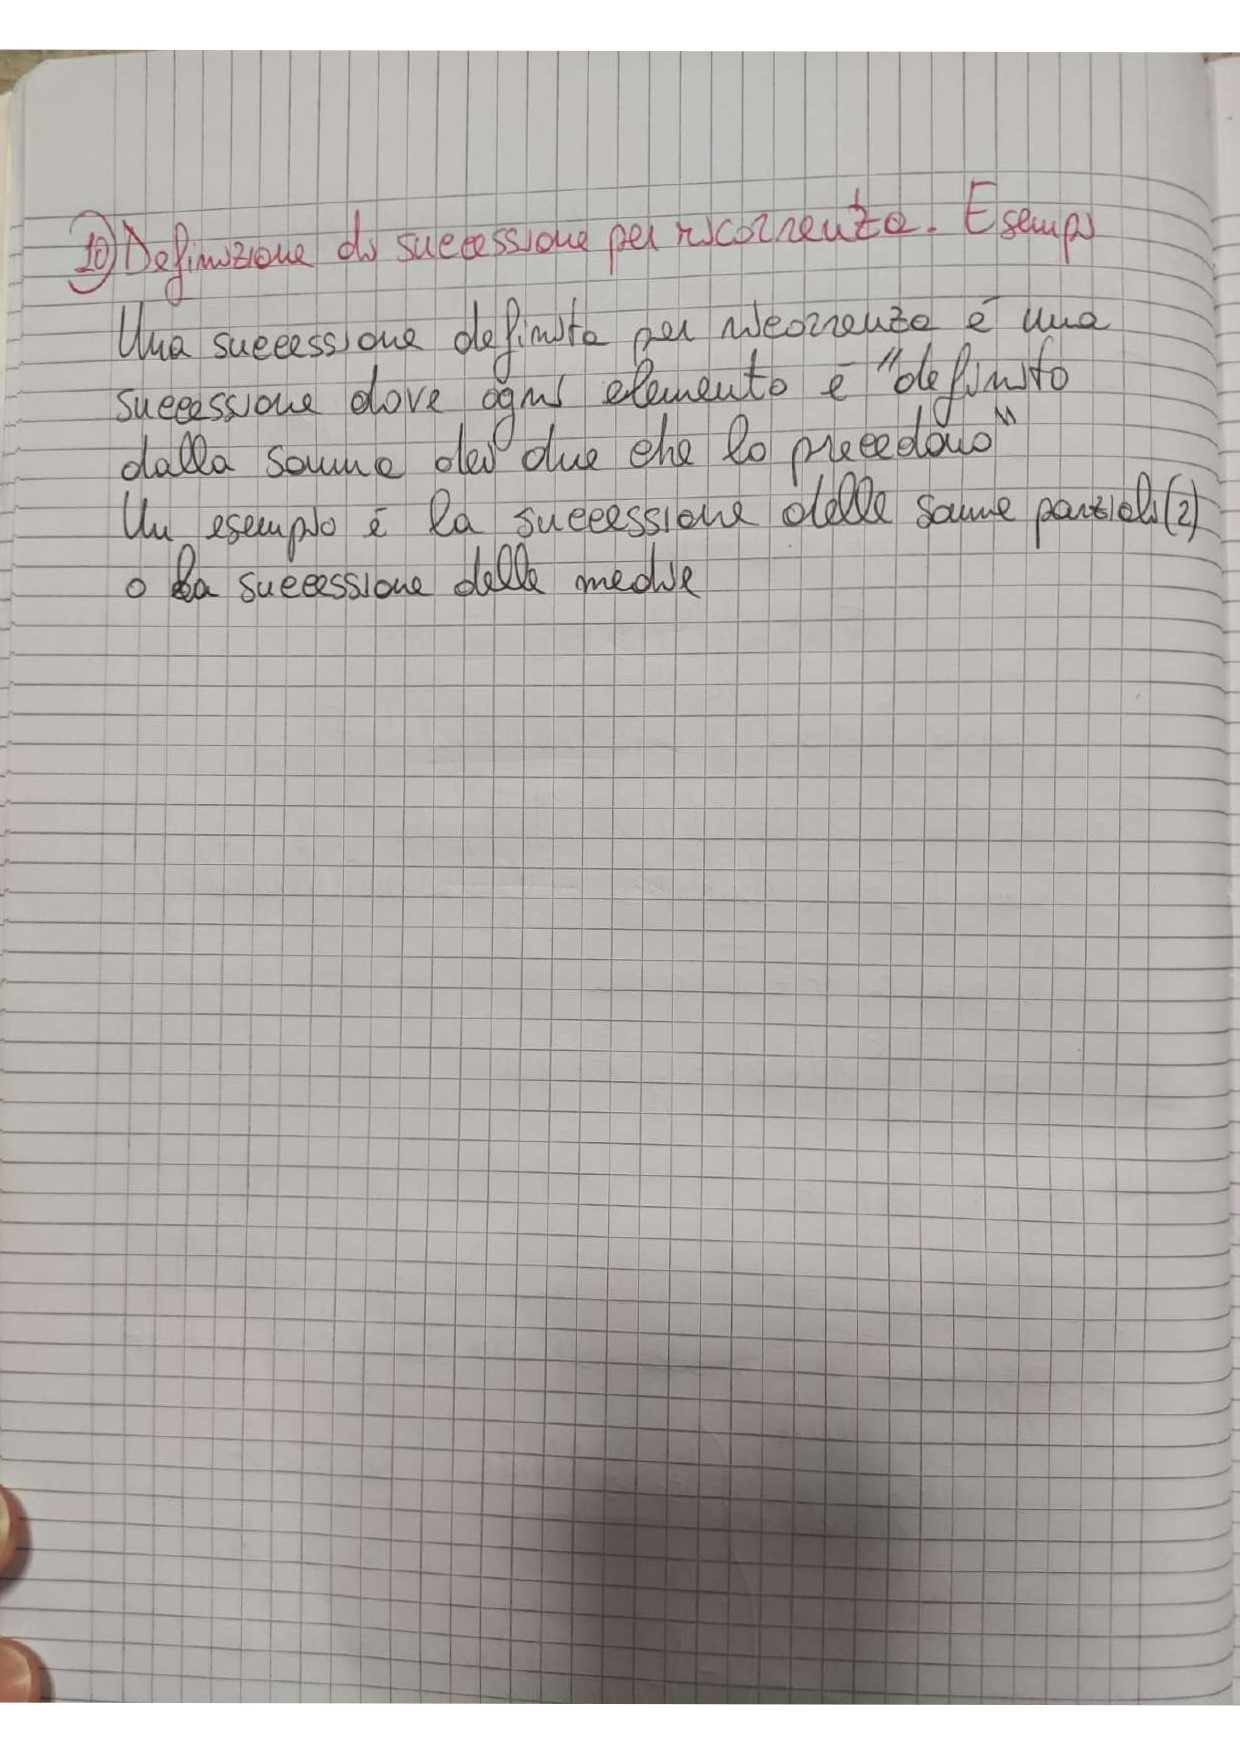 10) Definizione di successione per ricorrenza. Esempi
Una successione definita per ricorrenza è una
successione dove ogni elemento è "definito
dalla somma dei due che lo precedono"
Un esempio è la successione delle somme parziali (2)
o la successione delle medie